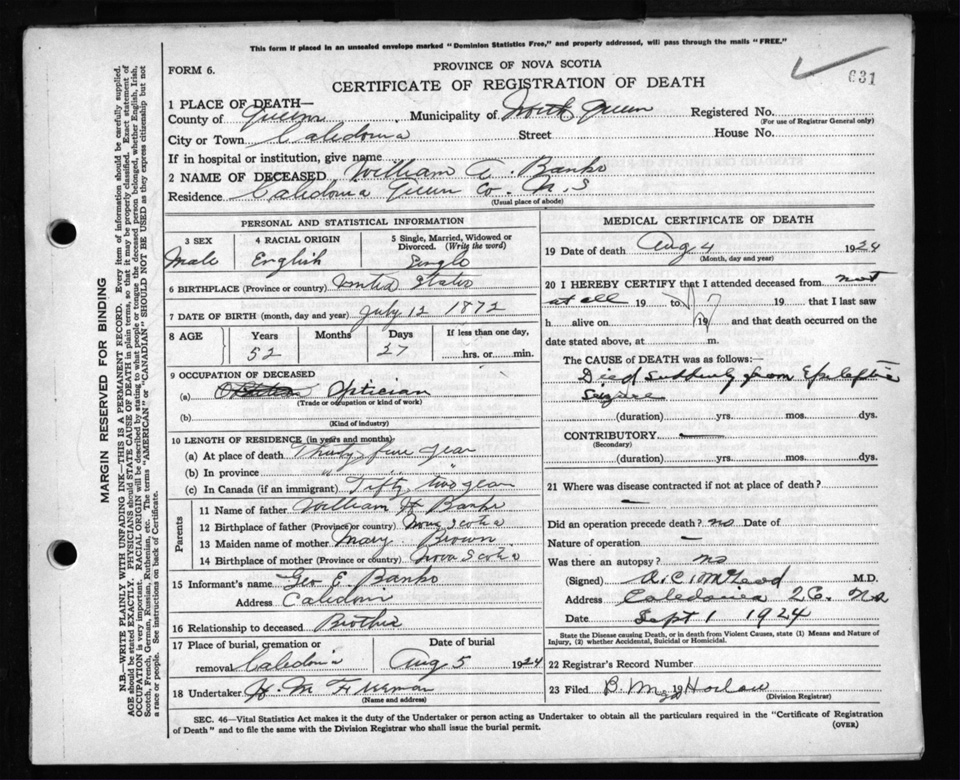 This form if placed in an unsealed envelope marked "Dominion Statistics Free," and properly addressed, will pass through the mails "FREE."
FORM 6.
PROVINCE OF NOVA SCOTIA
631
CERTIFICATE OF REGISTRATION OF DEATH
1 PLACE OF DEATH—
County of Queens Municipality of North Queen Registered No.
(For use of Registrar General only)
City or Town Caledonia Street House No.
If in hospital or institution, give name
2 NAME OF DECEASED William A. Banks
Residence Caledonia Queen Co. N. S
(Usual place of abode)
PERSONAL AND STATISTICAL INFORMATION
3 SEX 4 RACIAL ORIGIN 5 Single, Married, Widowed or Divorced. (Write the word)
Male English Single
6 BIRTHPLACE (Province or country) United States
7 DATE OF BIRTH (month, day and year) July 12 1872
8 AGE Years Months Days If less than one day,
52 27 hrs. or min.
9 OCCUPATION OF DECEASED
(a) Optician
(Trade or occupation or kind of work)
(b)
(Kind of industry)
10 LENGTH OF RESIDENCE (in years and months)
(a) At place of death Thirty five year
(b) In province " " "
(c) In Canada (if an immigrant) Fifty two year
Parents
11 Name of father William H Banks
12 Birthplace of father (Province or country) Nova Scotia
13 Maiden name of mother Mary Brown
14 Birthplace of mother (Province or country) Nova Scotia
15 Informant's name Geo E. Banks
Address Caledoni
16 Relationship to deceased Brother
17 Place of burial, cremation or Date of burial
removal Caledonia Aug 5 1924
18 Undertaker H. M Freeman
(Name and address)
MEDICAL CERTIFICATE OF DEATH
19 Date of death Aug 4 1924
(Month, day and year)
20 I HEREBY CERTIFY that I attended deceased from not
at all 19 to 19 that I last saw
h alive on 19 and that death occurred on the
date stated above, at m.
The CAUSE OF DEATH was as follows:—
Died suddenly from Epileptic
Seizure
(duration) yrs. mos. dys.
CONTRIBUTORY —
(Secondary)
(duration) yrs. mos. dys.
21 Where was disease contracted if not at place of death?
—
Did an operation precede death? no Date of
Nature of operation —
Was there an autopsy? no
(Signed) A. C. McLeod M.D.
Address Caledonia 2C. NS
Date Sept 1 1924
State the Disease causing Death, or in death from Violent Causes, state (1) Means and Nature of
Injury, (2) whether Accidental, Suicidal or Homicidal.
22 Registrar's Record Number
23 Filed 19
(Division Registrar)
SEC. 46—Vital Statistics Act makes it the duty of the Undertaker or person acting as Undertaker to obtain all the particulars required in the "Certificate of Registration
of Death" and to file the same with the Division Registrar who shall issue the burial permit.
(OVER)
MARGIN RESERVED FOR BINDING
N.B.—WRITE PLAINLY WITH UNFADING INK—THIS IS A PERMANENT RECORD. Every item of information should be carefully supplied.
AGE should be stated EXACTLY. PHYSICIANS should STATE CAUSE OF DEATH in plain terms, so that it may be properly classified. Exact statement of
OCCUPATION is very important. RACIAL ORIGIN will be described by stating to what people or tongue the deceased person belonged, whether English, Irish,
Scotch, French, German, Russian, Ruthenian, etc. The terms "AMERICAN" or "CANADIAN" SHOULD NOT BE USED as they express citizenship but not
a race or people. See instructions on back of Certificate.